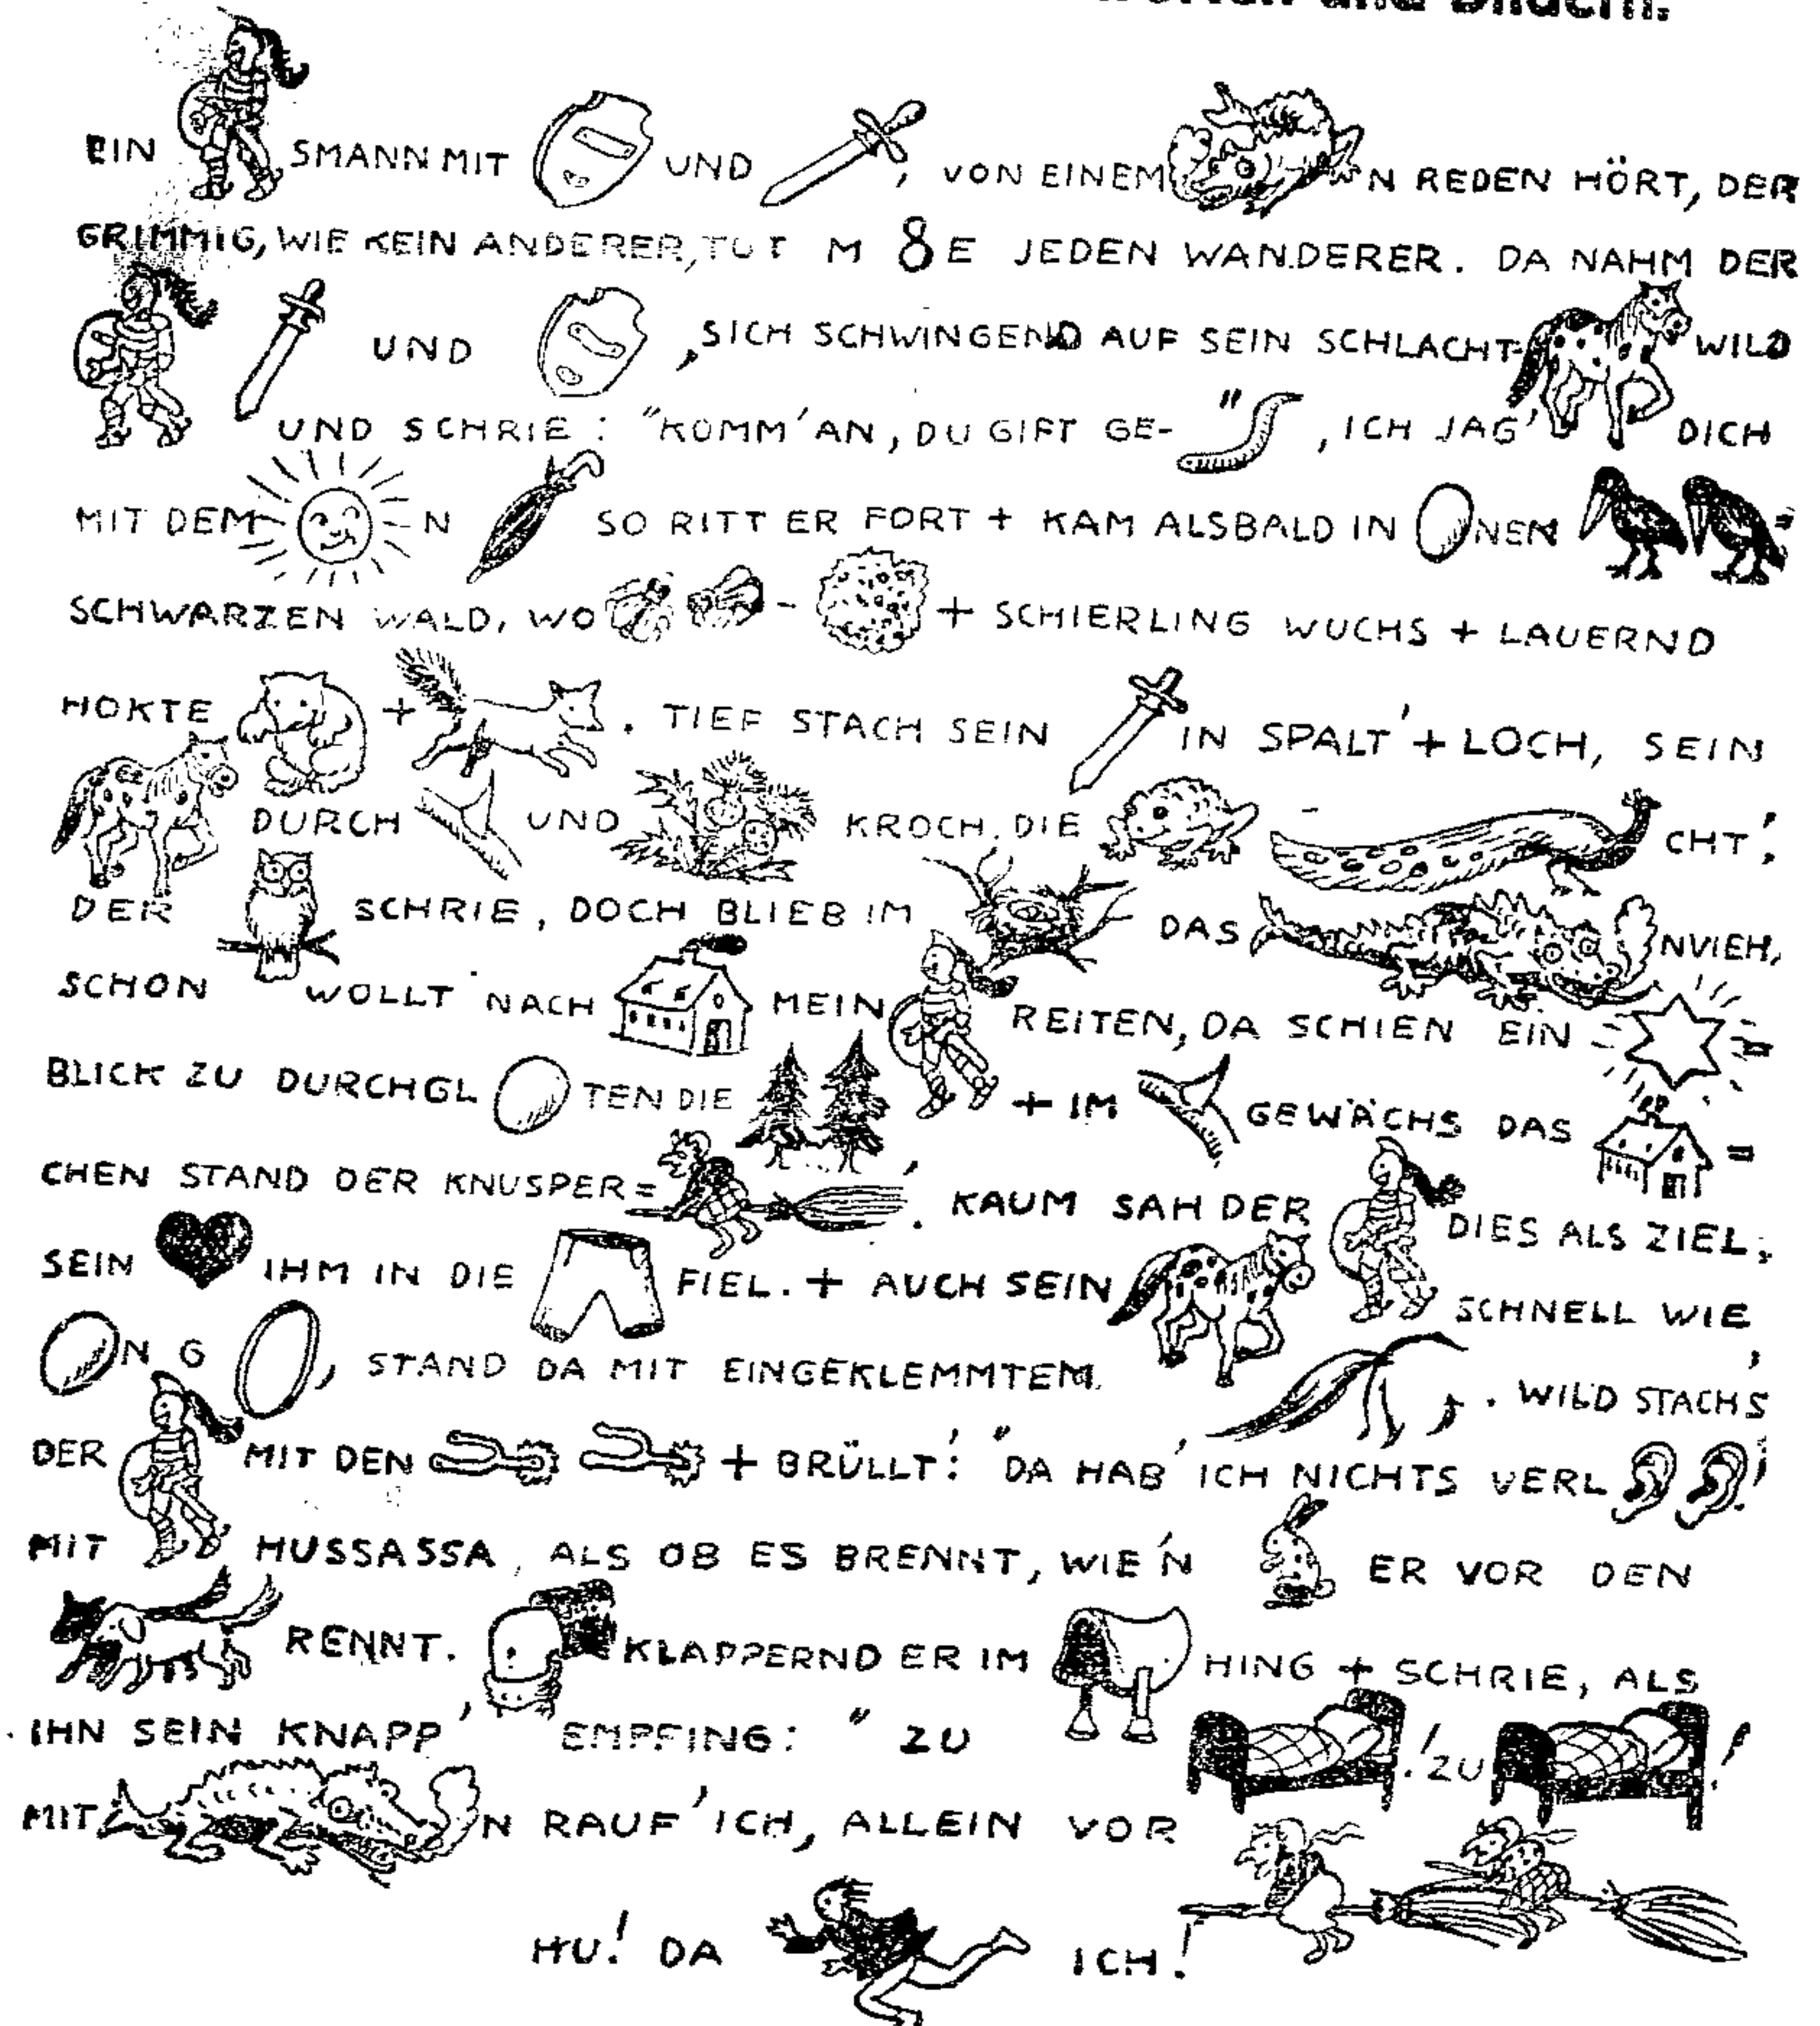 und Bildern.
EIN SMANN MIT UND , VON EINEM N REDEN HÖRT, DER
GRIMMIG, WIE KEIN ANDERER, TUT M 8 E JEDEN WANDERER. DA NAHM DER
UND , SICH SCHWINGEND AUF SEIN SCHLACHT- WILD
UND SCHRIE: "KOMM' AN, DU GIFT GE- ", ICH JAG' DICH
MIT DEM N SO RITT ER FORT + KAM ALSBALD IN NEN =
SCHWARZEN WALD, WO - + SCHIERLING WUCHS + LAUERND
HOKTE + . TIEF STACH SEIN IN SPALT' + LOCH, SEIN
DURCH UND KROCH. DIE CHT!
DER SCHRIE, DOCH BLIEB IM DAS NVIEH,
SCHON WOLLT' NACH MEIN REITEN, DA SCHIEN EIN =
BLICK ZU DURCHGL TEN DIE + IM GEWÄCHS DAS =
CHEN STAND DER KNUSPER= . KAUM SAH DER DIES ALS ZIEL,
SEIN IHM IN DIE FIEL. + AUCH SEIN SCHNELL WIE
N G , STAND DA MIT EINGEKLEMMTEM . WILD STACH'S
DER MIT DEN + BRÜLLT': "DA HAB' ICH NICHTS VERL !
MIT HUSSASSA, ALS OB ES BRENNT, WIE'N ER VOR DEN
RENNT. KLAPPERND ER IM HING + SCHRIE, ALS
IHN SEIN KNAPP' EMPFING: "ZU ! ZU !
MIT N RAUF' ICH, ALLEIN VOR
HU! DA ICH!